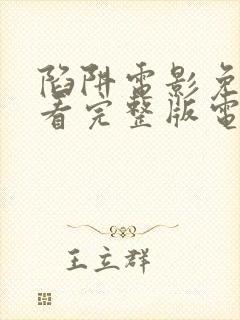 陷阱電影免
看完整版電
王立群